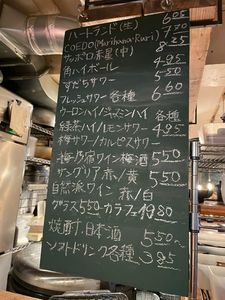 ハートランド(生) 605
COEDO(Marihana・Ruri) 770
サッポロ赤星(中) 825
角ハイボール 495
すだちサワー 550
フレッシュサワー 各種 660
ウーロンハイ/ジャスミンハイ 各種
緑茶ハイ/レモンサワー 495
梅サワー/カルピスサワー
梅乃宿ワイン梅酒 550
サングリア赤/黄 550
自然派ワイン 赤/白
グラス550 カラフェ1980
焼酎、日本酒 550~
ソフトドリンク各種 385